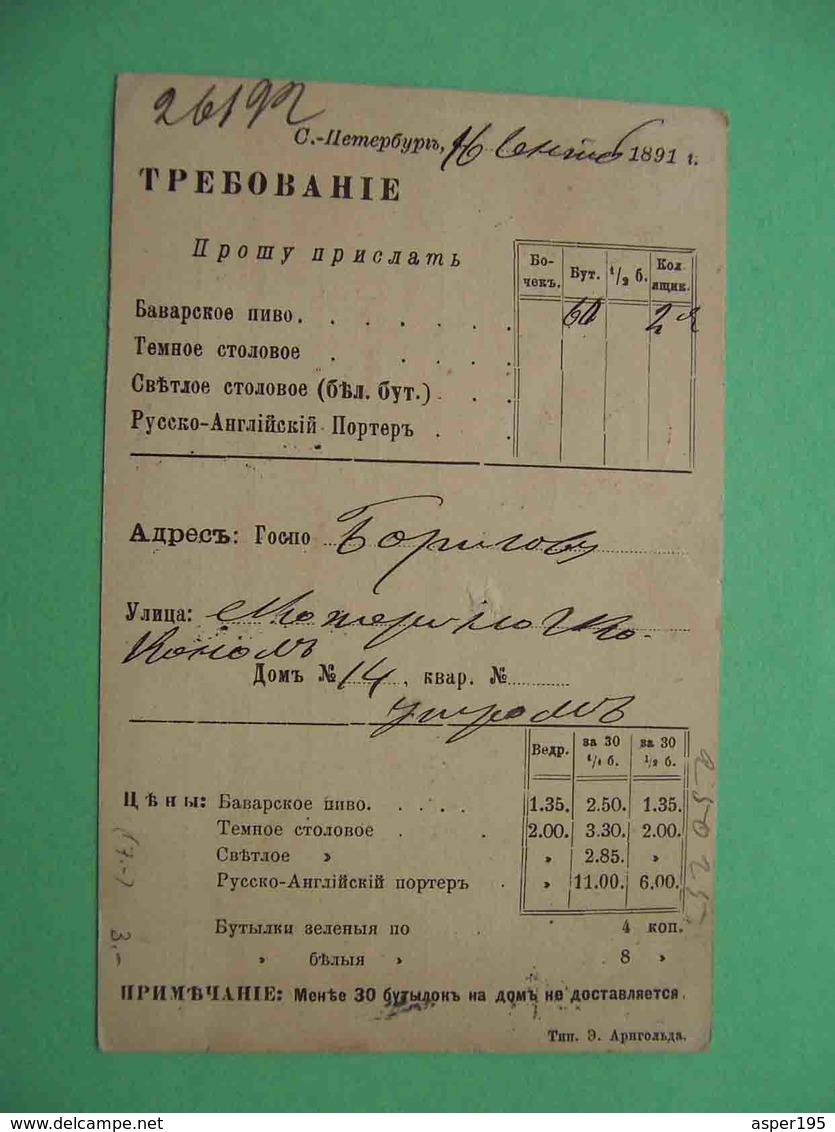 26192
С.-Петербургъ, 16 Сентяб 1891 г.
ТРЕБОВАНІЕ
Прошу прислать
Бо-чекъ. Бут. 1/2 б. Кол. ящик.
Баварское пиво. 60 2 я
Темное столовое
Свѣтлое столовое (бѣл. бут.)
Русско-Англійскій Портеръ
Адресъ: Госпо Борисову
Улица: Екатерининскіо
Каналъ
Домъ № 14, квар. №
утромъ
Ведр. за 30 1/1 б. за 30 1/2 б.
Цѣны: Баварское пиво. 1.35. 2.50. 1.35.
Темное столовое 2.00. 3.30. 2.00.
Свѣтлое » » 2.85. »
Русско-Англійскій портеръ » 11.00. 6.00.
Бутылки зеленыя по 4 коп.
» бѣлыя » 8 »
ПРИМѢЧАНІЕ: Менѣе 30 бутылокъ на домъ не доставляется.
Тип. Э. Арнгольда.
3.-
delcampe.net
asper195